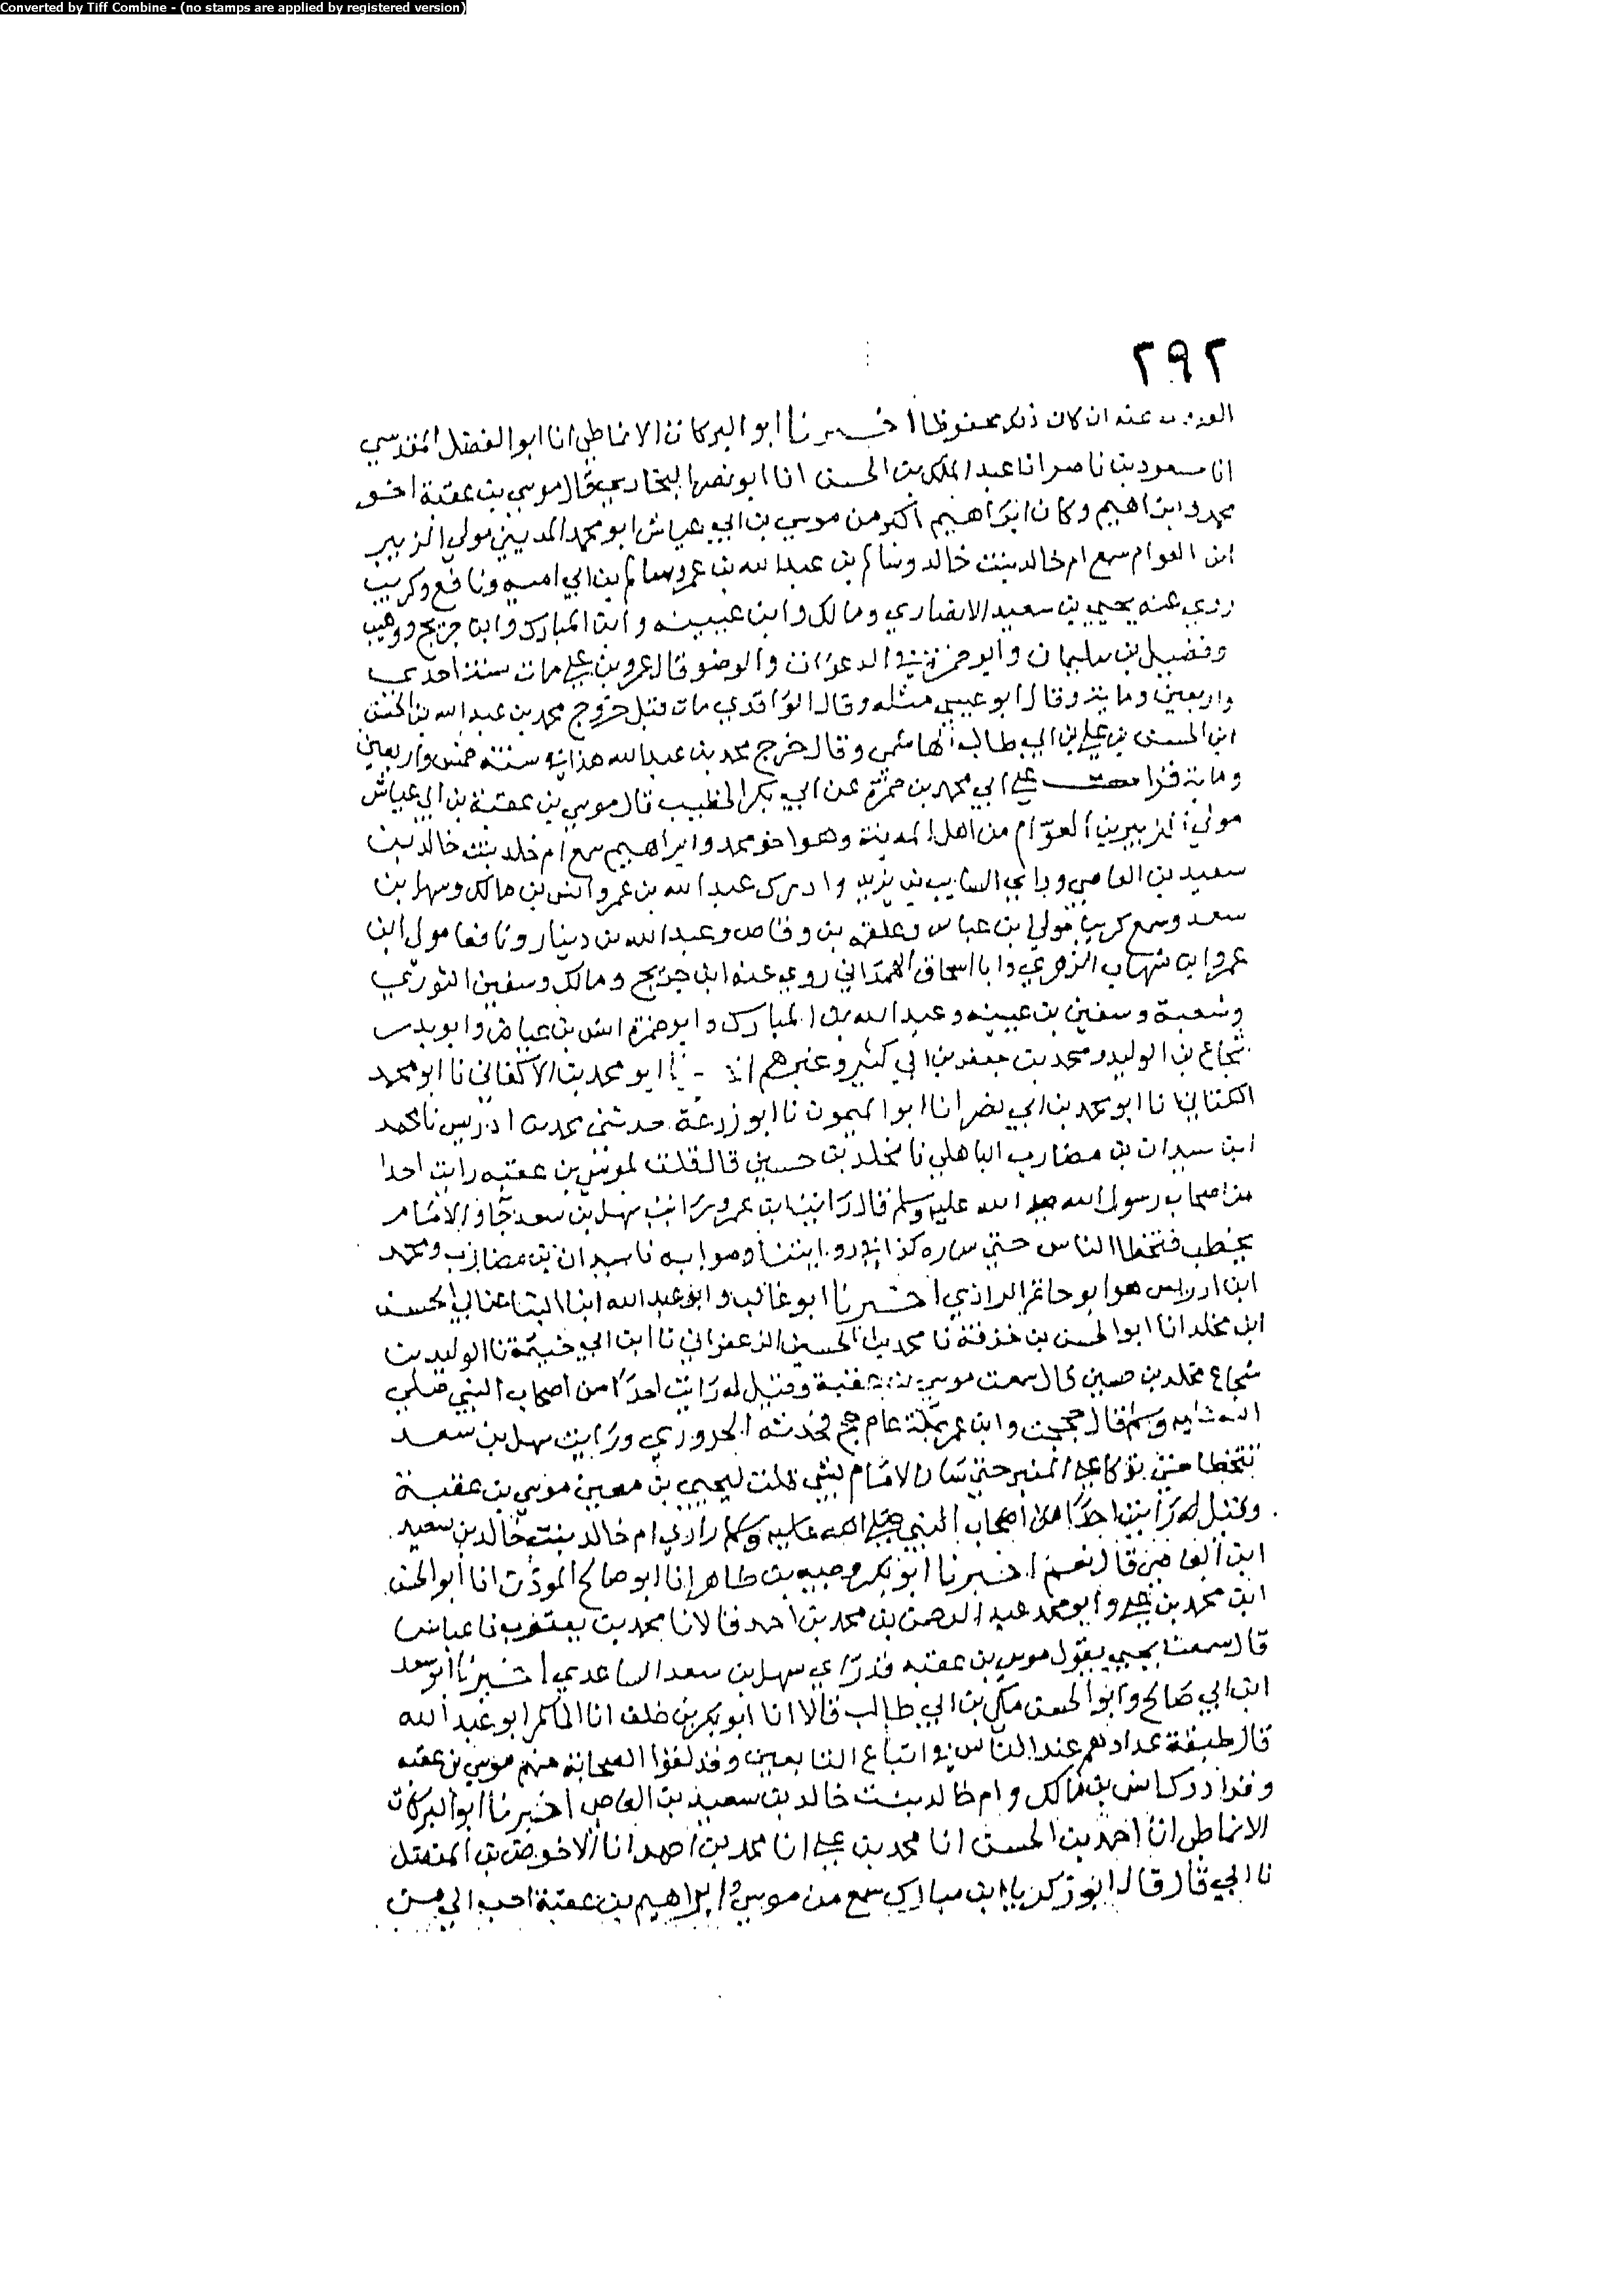 Converted by Tiff Combine - (no stamps are applied by registered version)
٢٩٢
عنه ان كان ذلك محفوظا اخبرنا ابو البركات الانماطي انا ابو الفضل المقدسي
انا مسعود بن ناصر انا عبد الملك بن الحسن انا ابو نصر البخاري قال موسي بن عقبة اخو
محمد وابراهيم وكان ابراهيم اكبر من موسي بن ابي عياش ابو محمد المديني مولي الزبير
ابن العوام سمع ام خالد بنت خالد وسالم بن عبد الله بن عمر وسالم بن ابي اميه ونافع وكريب
روي عنه يحيي بن سعيد الانصاري ومالك وابن عيينه وابن المبارك وابن جريج ووهيب
وفضيل بن سليمان وابو ضمرة في الدعوات والوضو قال عمرو بن علي مات سنة احدي
واربعين وماية وقال ابو عيسي مثله وقال الواقدي مات قبل خروج محمد بن عبد الله بن الحسن
ابن الحسن بن علي بن ابي طالب الهاشمي وقال خرج محمد بن عبد الله هذا في سنة خمس واربعين
وماية قرات علي ابي محمد بن حمزة عن ابي بكر الخطيب قال موسي بن عقبة بن ابي عياش
مولي الزبير بن العوام من اهل المدينة وهو اخو محمد وابراهيم سمع ام خلد بنت خالد بن
سعيد بن العاصي وراي السايب بن يزيد وادرك عبد الله بن عمر وانس بن مالك وسهل بن
سعد وسمع كريب مولي ابن عباس وعلقمه بن وقاص وعبد الله بن دينار ونافعا مولي ابن
عمر وابن شهاب الزهري وابا اسحاق الهمداني روي عنه ابن جريج ومالك وسفين الثوري
وشعبة وسفين بن عيينه وعبد الله بن المبارك وابو ضمرة انس بن عياض وابو بدر
شجاع بن الوليد ومحمد بن جعفر بن ابي كثير وغيرهم ابو محمد بن الاكفاني نا ابو محمد
الكتاني نا ابو محمد بن ابي نصر انا ابو الميمون نا ابو زرعة حدثني محمد بن ادريس نا محمد
ابن سيدان بن مضارب الباهلي نا مخلد بن حسين قال قلت لموسي بن عقبه رايت احدا
من اصحاب رسول الله صلي الله عليه وسلم قال رايت ابن عمر ورايت سهل بن سعد جاء والامام
يخطب فتخطا الناس حتي ساره كذا في روايتنا وصوابه نا سيدان بن مضارب ومحمد
ابن ادريس هو ابو حاتم الرازي اخبرنا ابو غالب وابو عبد الله ابنا البنا عن ابي الحسن
ابن مخلد انا ابو الحسن بن خزفة نا محمد بن الحسين الزعفراني نا ابن ابي خيثمة نا الوليد بن
شجاع مخلد بن حسين قال سمعت موسي بن عقبة وقيل له رايت احدا من اصحاب النبي صلي
الله عليه وسلم قال حججت وابن عمر بمكة عام حج نجدة الحروري ورايت سهل بن سعد
يتخطا حتي توكا علي المنبر حتي سار الامام بشي قلت ليحيي بن معين موسي بن عقبة
وقيل له رايت احدا من اصحاب النبي صلي الله عليه وسلم راي ام خالد بنت خالد بن سعيد
ابن العاص قال نعم اخبرنا ابو بكر وجيه بن طاهر انا ابو صالح الموذن انا ابو الحسن
ابن محمد بن علي وابو محمد عبد الرحمن بن محمد بن احمد قالا نا محمد بن يعقوب نا عباس
قال سمعت يحيي يقول موسي بن عقبه قد راي سهل بن سعد الساعدي اخبرنا ابو سعد
ابن ابي صالح وابو الحسن مكي بن ابي طالب قالا انا ابو بكر بن خلف انا الحاكم ابو عبد الله
قال طبقة عدادهم عند الناس في اتباع التابعين وقد لقوا الصحابة منهم موسي بن عقبه
وقد ادرك انس بن مالك وام خالد بنت خالد بن سعيد بن العاص اخبرنا ابو البركات
الانماطي انا احمد بن الحسن انا محمد بن علي انا محمد بن احمد انا الاحوص بن المفضل
نا ابي قال قال ابو زكريا ابن مبارك سمع من موسي وابراهيم بن عقبة احب الي من